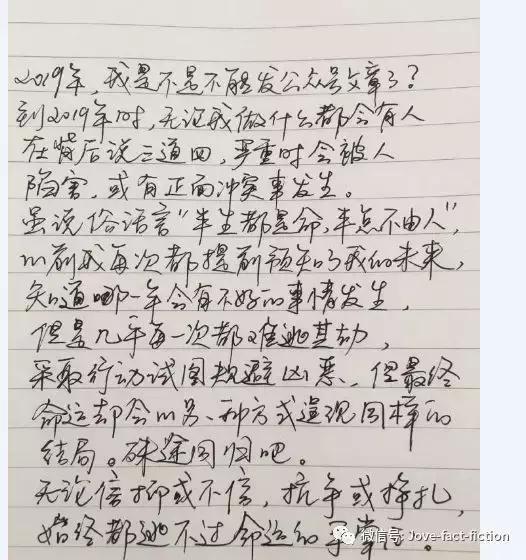 2019年,我是不是不能发公众号文章了?
到2019年时,无论我做什么都会有人
在背后说三道四,严重时会被人
陷害,或有正面冲突事发生。
虽说俗话言“半生都是命,半点不由人”,
以前我每次都提前预知了我的未来,
知道哪一年会有不好的事情发生,
但是几乎每一次都难逃其劫,
采取行动试图规避凶恶、但最终
命运却会以另一种方式造现同样的
结局。殊途同归吧。
无论信抑或不信,抗争或挣扎,
始终都逃不过命运的手掌心。
微信号: Jove-fact-fiction